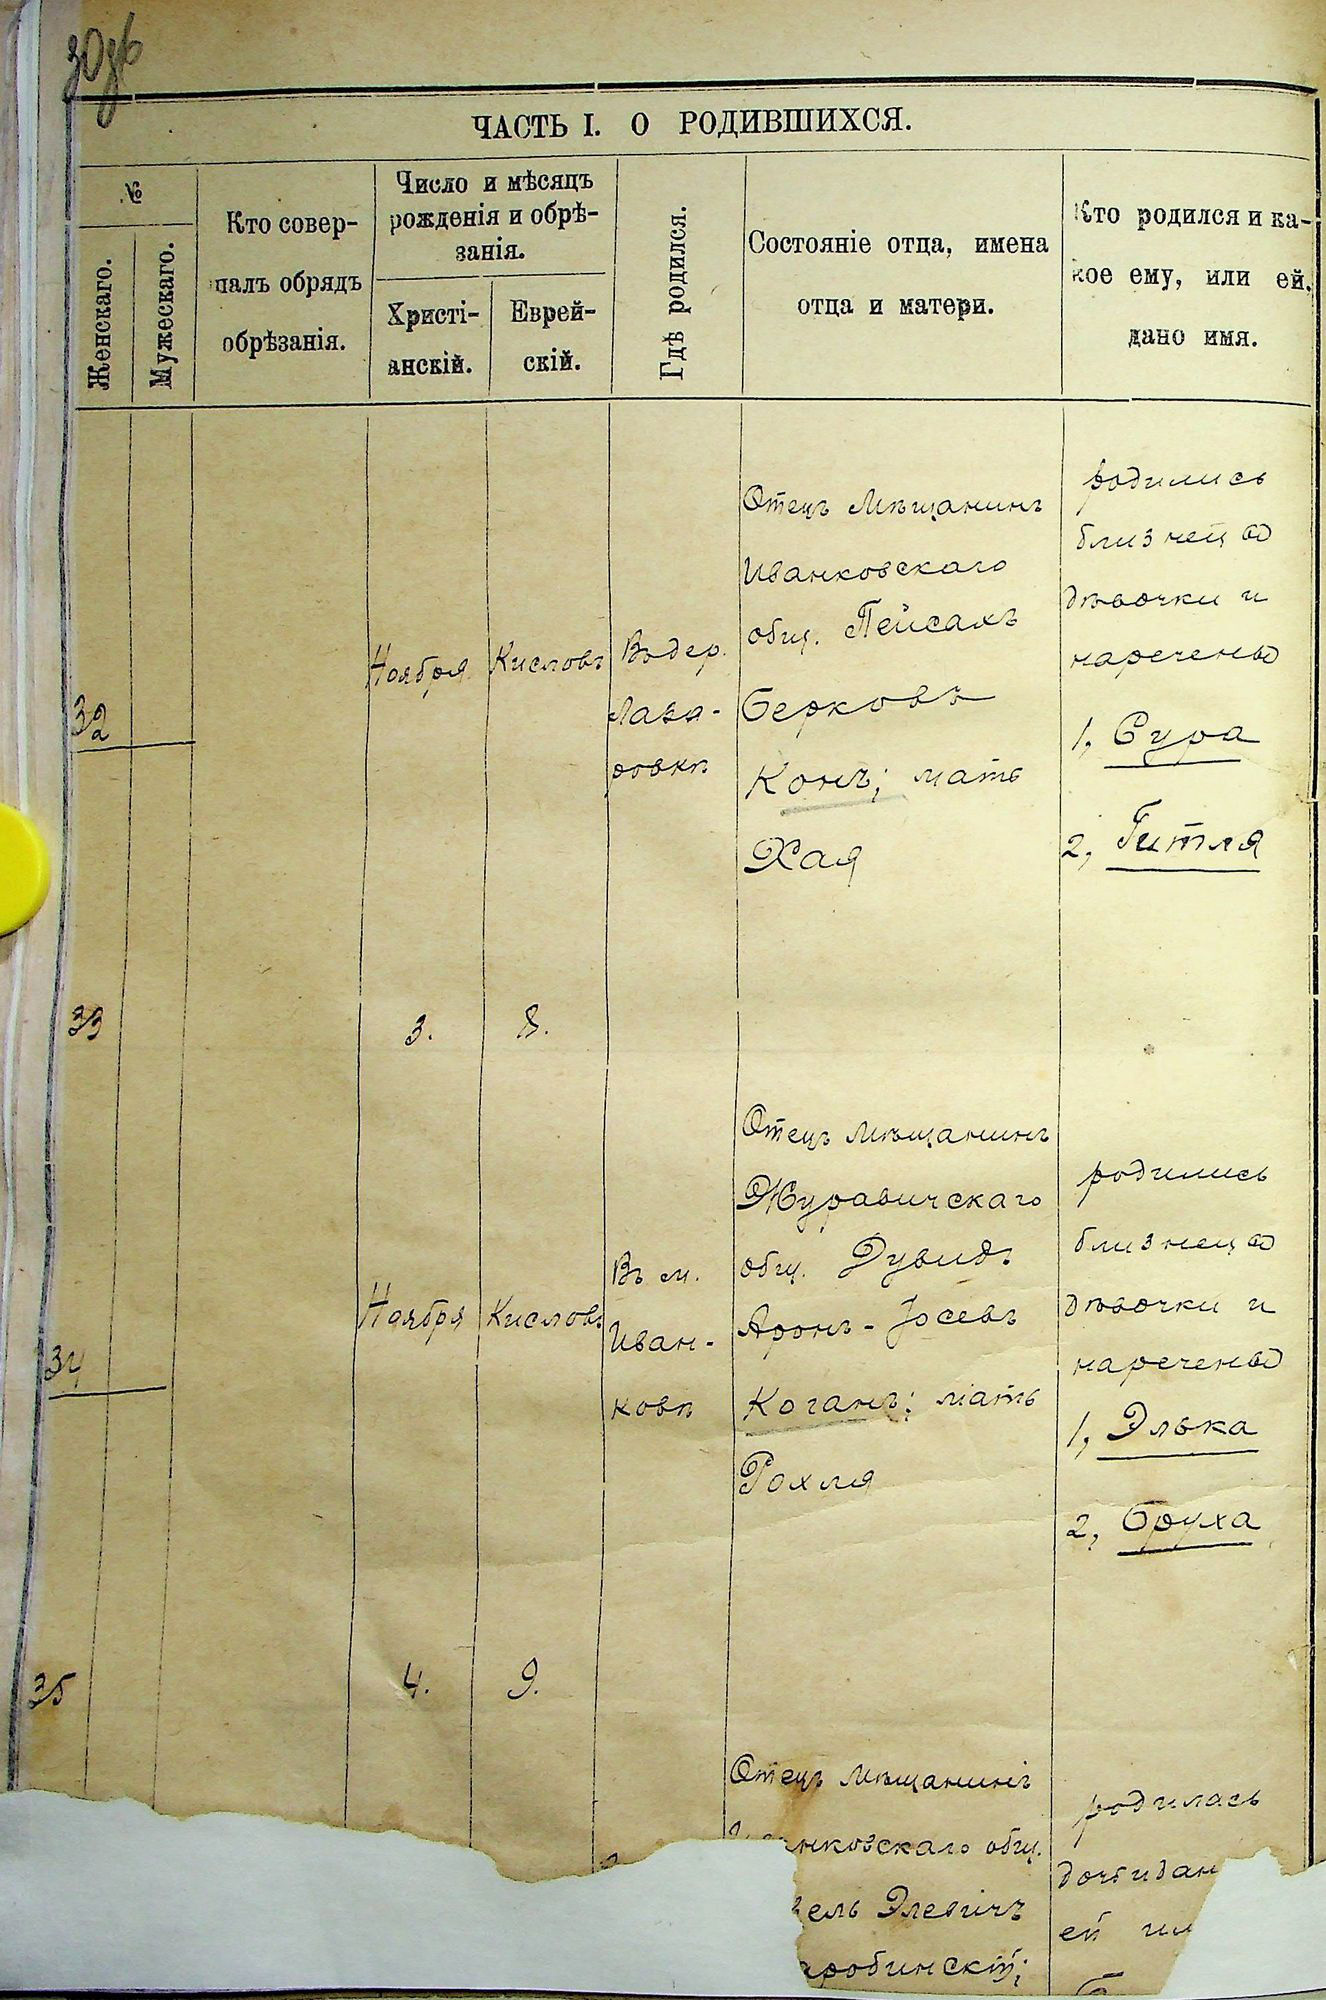 30 об
ЧАСТЬ I. О РОДИВШИХСЯ.
№
Женскаго.
Мужескаго.
Кто совер-
шалъ обрядъ
обрѣзанія.
Число и мѣсяцъ
рожденія и обрѣ-
занія.
Христі-
анскій.
Еврей-
скій.
Гдѣ родился.
Состояніе отца, имена
отца и матери.
Кто родился и ка-
кое ему, или ей,
дано имя.
32
33
Ноября
3.
Кисловъ
8.
Въ дер.
Лаза-
ровкѣ
Отецъ Мѣщанинъ
Иванковскаго
общ. Пейсахъ
Берковъ
Конъ; мать
Хая
родились
близнецы
дѣвочки и
наречены
1, Сура
2, Гитля
34
35
Ноября
4.
Кисловъ
9.
Въ м.
Иван-
ковѣ
Отецъ Мѣщанинъ
Журавичскаго
общ. Дувидъ
Аронъ-Іосевъ
Коганъ; мать
Рохля
родились
близнецы
дѣвочки и
наречены
1, Элька
2, Бруха
Отецъ Мѣщанинъ
Иванковскаго общ.
ель Элевичъ
аробинскій;
родилась
дочь и дан
ей им